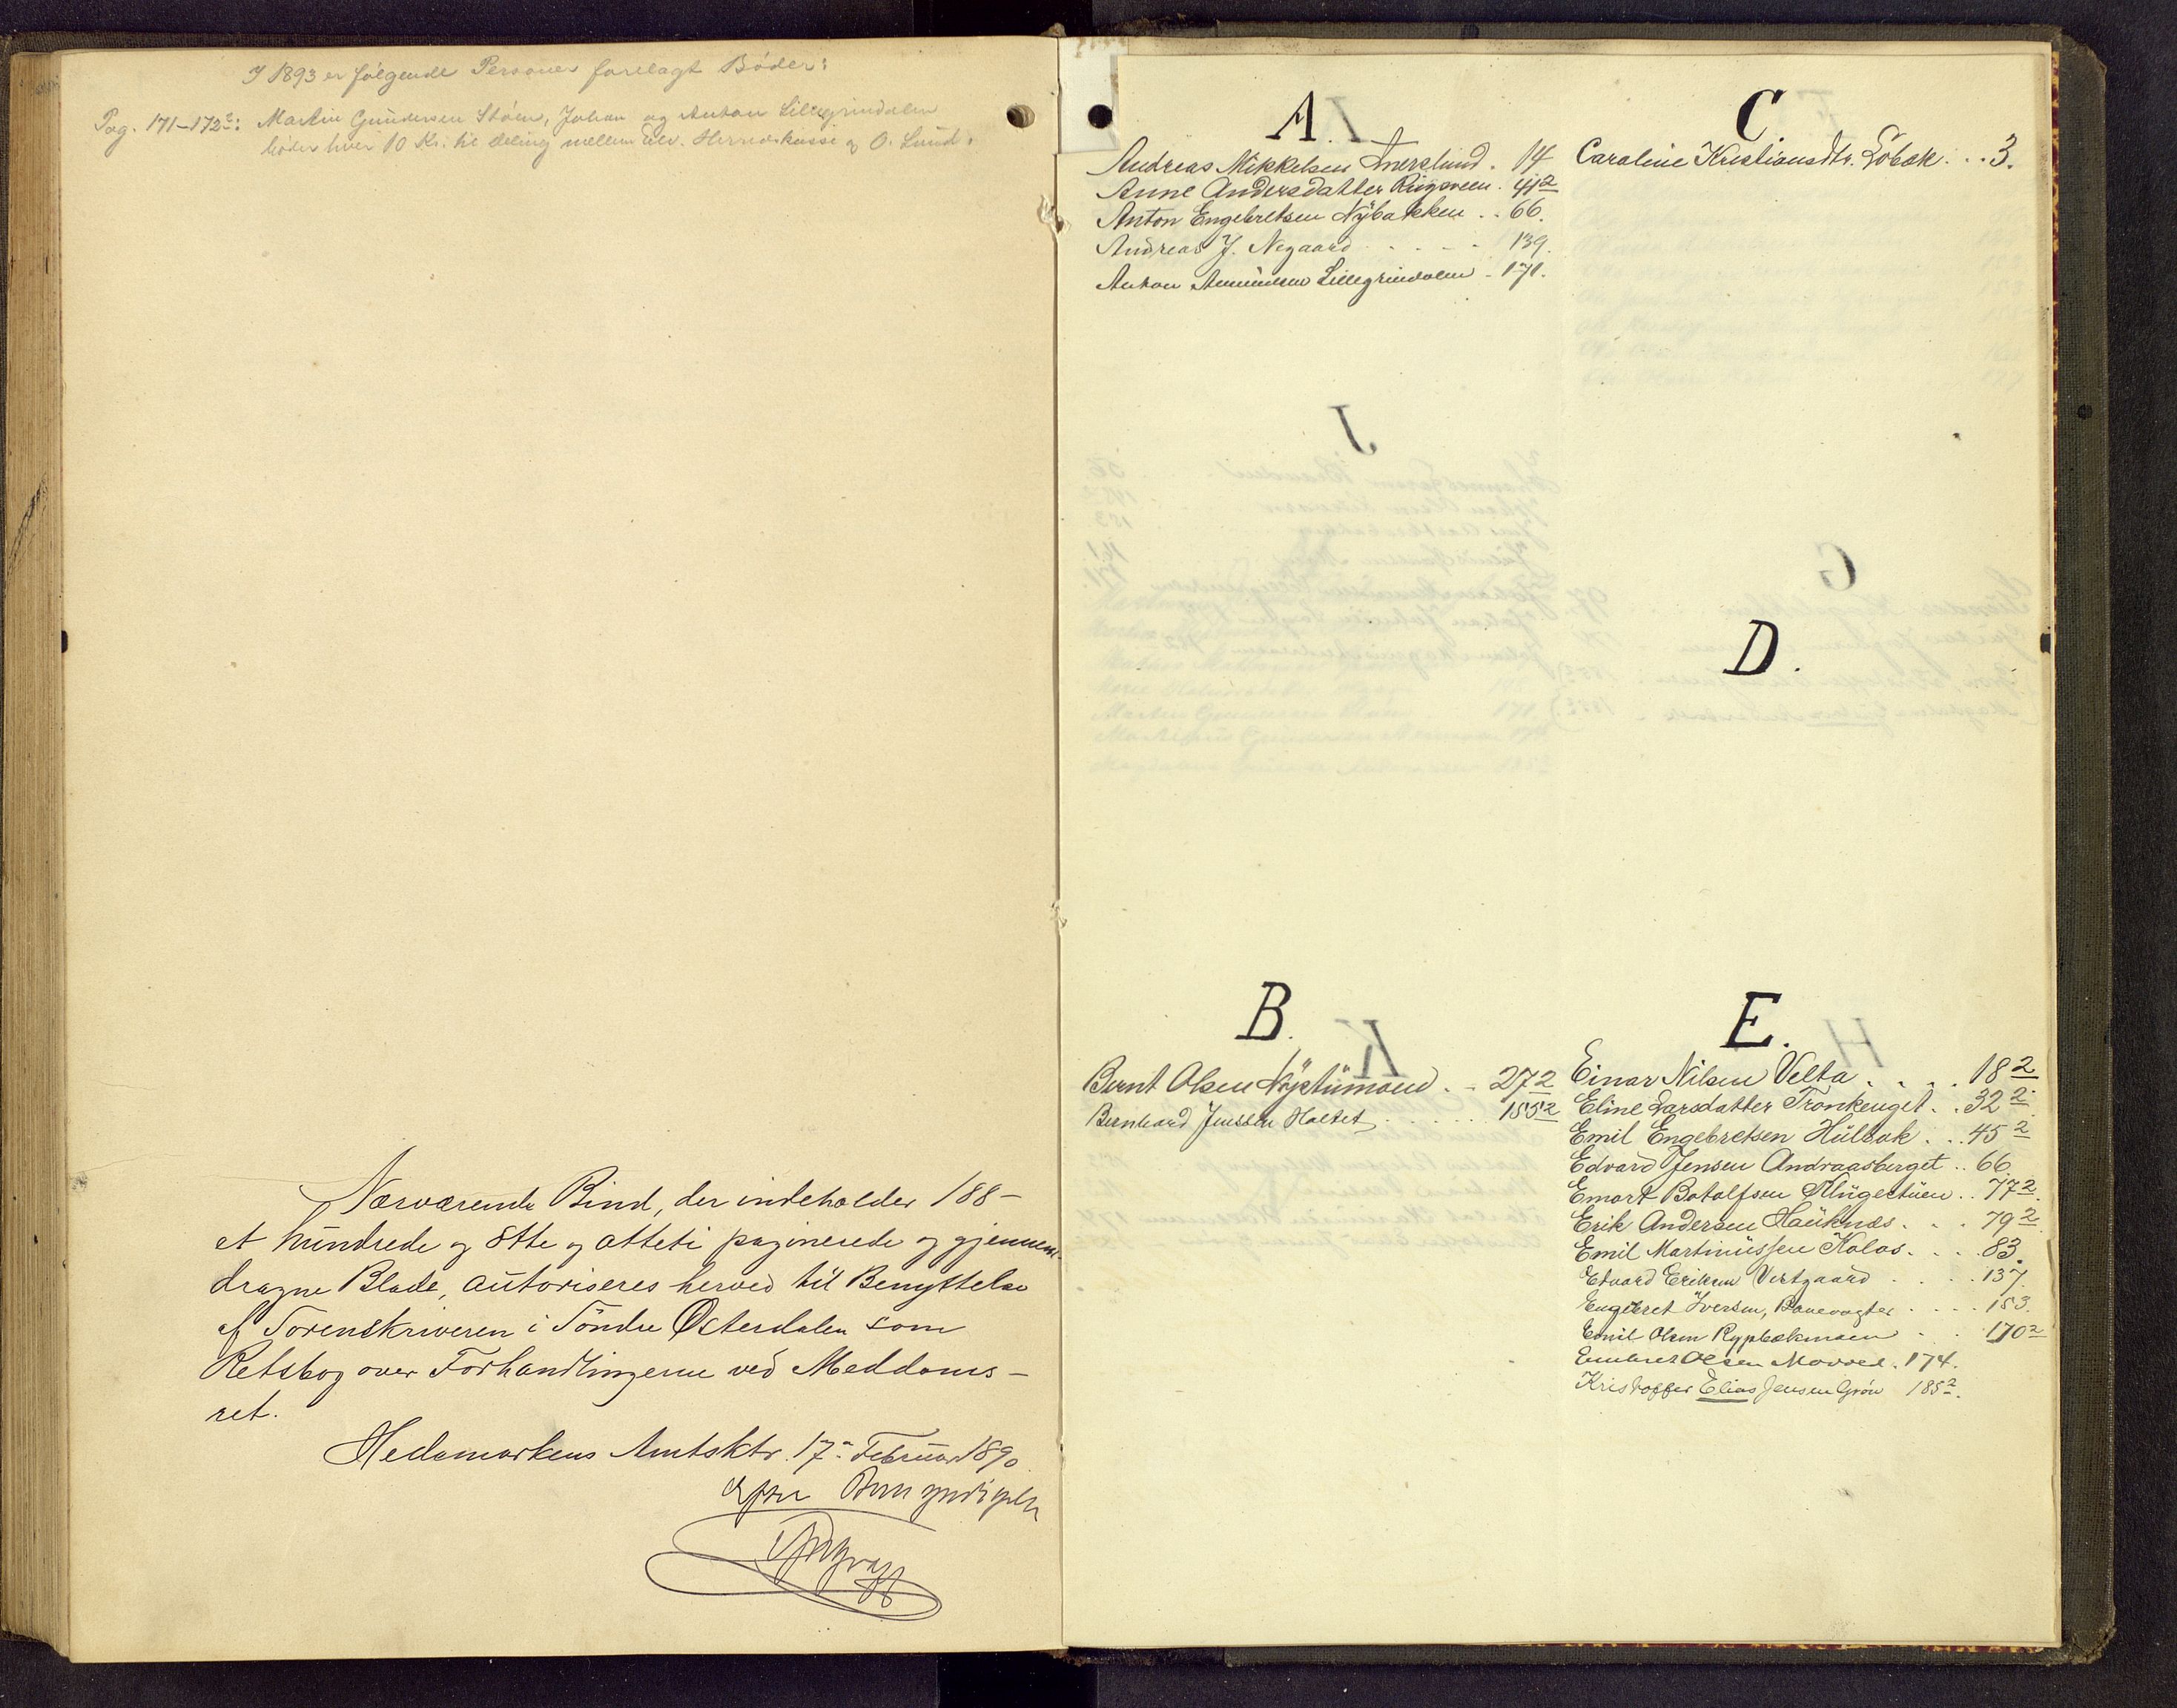 I 1893 er følgende Personer forelagt Bøder:
Pag. 171-172²: Martin Gundersen Støen, Johan og Anton Lillegrindalen
bøder hver 10 Kr. til deling mellem Elv. Herredskasse og O. Lund.
Nærværende Bind, der indeholder 188 –
et hundrede og otte og otteti paginerede og gjennem-
dragne Blade, autoriseres herved til Benyttelse
af Sorenskriveren i Söndre Østerdalen som
Retsbog over Forhandlingerne ved Meddoms-
ret.
Hedemarkens Amtsktr. 17de Februar 1890
A.
Andreas Mikkelsen Emerslund . 14
Anne Andersdatter Rugsveen . 41²
Anton Engebretsen Nybakken . . 66.
Andreas J. Negaard . . . . 139.
Anton Amundsen Lillegrindalen . 171.
B.
Bernt Olsen Nystumoen . . 27²
Bernhard Jenssen Holtet . . . . . 155²
C.
Caroline Kristiansdtr. Lobæk . . . 3.
D.
E.
Einar Nilsen Velta . . . . 18²
Eline Larsdatter Tronkenget . . 32²
Emil Engebretsen Hulbak . . . 45²
Edvard Jensen Andraasberget . . 66.
Emort Botolfsen Klugertuen . . 77²
Erik Andersen Hauknæs . . . 79²
Emil Martinussen Kolos . . . . 83.
Edvard Eriksen Vestgaard . . . . 137.
Engebret Iversen, Banevogter . . . . 153.
Emil Olsen Rypbækmoen . . . 170²
Olsen . 174.
Kristoffer Elias Jensen Grøn 185².